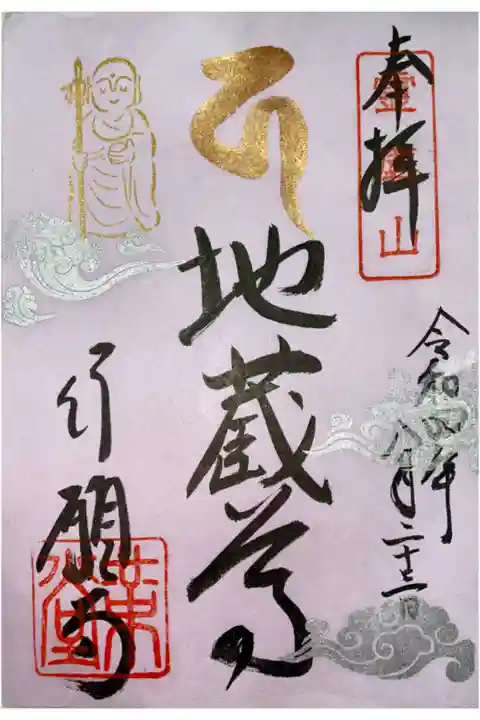 奉拝
山
令和四年
八月二十三日
地蔵尊
行願寺
革堂